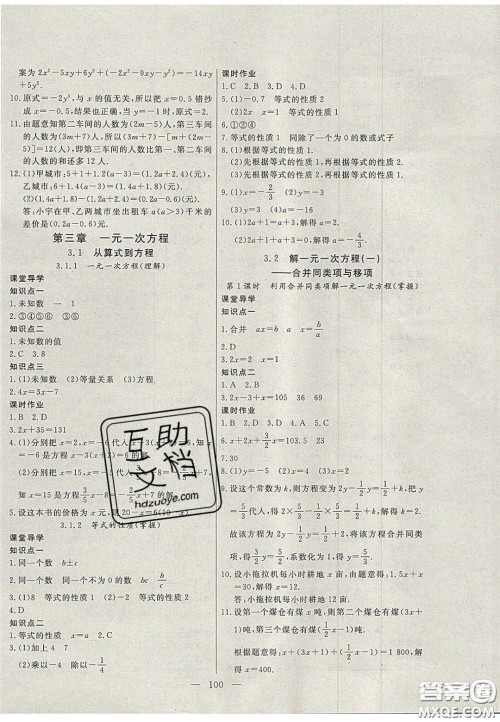 案为2x²-5xy+6y²+(-2x²-9xy-y²)=-14xy
+5y².
10.原式=-2y³,与x的值无关,所以小明把x=0.5错抄
成x=-0.5,不影响结果,当y=-1时,原式=2.
11.由题意知第二车间的人数为(2m-5)人,第三车间
的人数为(3m+7)人,所以(3m+7)-[m+(2m-
5)]=12(人),即第三车间的人数比第一、第二车间
的人数的和还多12人.
12.(1)甲城市:5+1+1.2(a-3)=(1.2a+2.4)(元),
乙城市:6+1+1.4(a-3)=(1.4a+2.8)(元).
(2)(1.4a+2.8)-(1.2a+2.4)=(0.2a+0.4)(元).
答:小宇在甲、乙两城市坐出租车a(a>3)千米的
差价是(0.2a+0.4)元.
第三章 一元一次方程
3.1 从算式到方程
3.1.1 一元一次方程(理解)
课堂导学
知识点一
1.未知数 1
2.③④⑤⑥ ③⑥
知识点二
1.未知数的值
2.C 3.8
知识点三
1.(1)未知数 (2)等量关系 (3)方程
2.4x=3x-7
课时作业
1.B 2.D
3.2x+35=131
4.(1)分别把x=2,x=-6代入
=-6是方程3(x+2)=
(2)分别把x=15
知x=15是方程5/3x-8=-2/5x+
5.设这本书的价格为x元,
3.1.2 等式的性质(掌握)
课堂导学
知识点一
1.同一个数 b±c
2.同一个数 同一个不为0的数 bc b/c
3.(1)8 等式的性质1 (2)-2 等式的性质2
4.D
知识点二
1.等式的性质 x=a 2.C
3.(1)加上4 7
(2)乘以-4 除以-1/4
课时作业
1.C 2.B 3.D 4.D
5.(1)-0.7 等式的性质2
(2)-2x 等式的性质1
6.①③④
7.等式的性质1 同除了一个为0的数或式子
8.(1)先根据等式的性质1,再根据等式的性质2
(2)先根据等式的性质1,再根据等式的性质2
9.(1)x=-2/3
(2)y=9
3.2 解一元一次方程(一)
——合并同类项与移项
第1课时 利用合并同类项解一元一次方程(掌握)
课堂导学
知识点一
1.合并 ax=b x=b/a
2.D
3.2x=2 x=1
知识点二
1.A 2.x-3+x=35
3.2x+3x+5x=100 20
课时作业
1.B 2.A 3.D 4.B 5.D
6.x+x+1/2x=103.5 23
7.30
8.(1)x=-5
9.设这个常数为k,则原方程变为2y-1/2=1/2y+k,把
y=5/3代入,得2×5/3-1/2=1/2×5/3+k,得k=2.
故该方程为2y-1/2=1/2y+2.解该方程.合并同类
项,得3/2y=5/2,系数化为1,得y=5/3.
10.设小拖拉机每小时耕地x亩,由题意得:1.5x+x=
30,解得x=12.
答:小拖拉机每小时耕地12亩.
11.设第一个煤仓有煤x吨,则第二个煤仓有煤(3/2x)
吨,第三个煤仓有煤(2x)吨,
根据题意得:x+(3/2x)+(2x)=1 800,解
得x=400.
100
互助文档
hdzuoye.com
答案圈
MXQE.COM